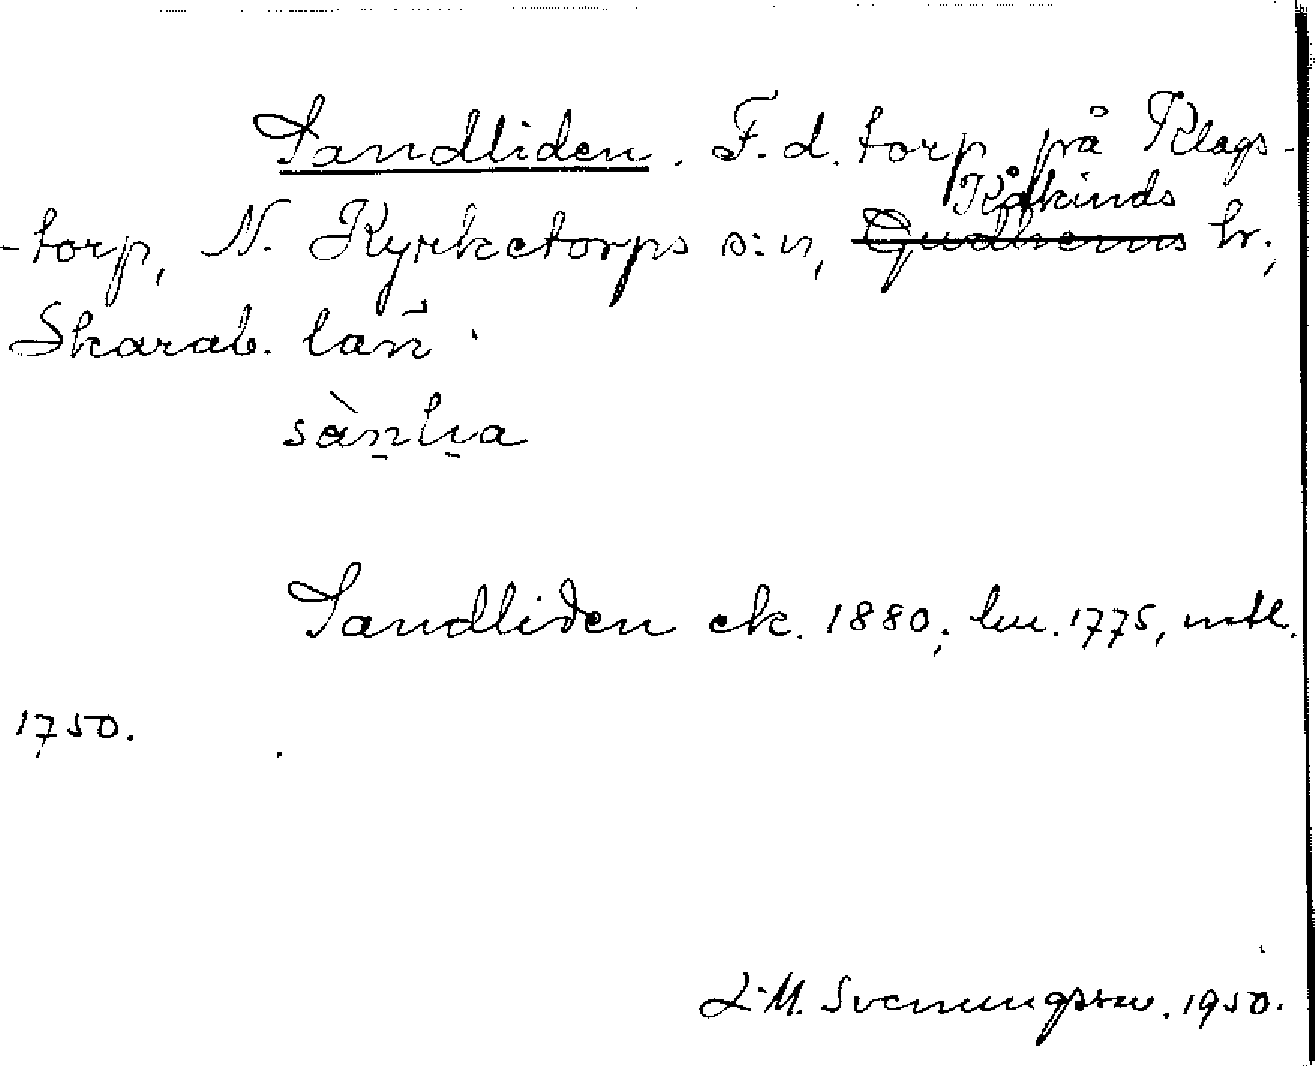 Sandliden. F.d. torp på Klags-
-torp, N. Kyrketorps s:n, Gudhems Kåkinds hr,
Skarab. län
sàn̠li̠a
Sandliden ek. 1880; hu. 1775, mtl.
1750.
L.M. Svenungsson. 1950.